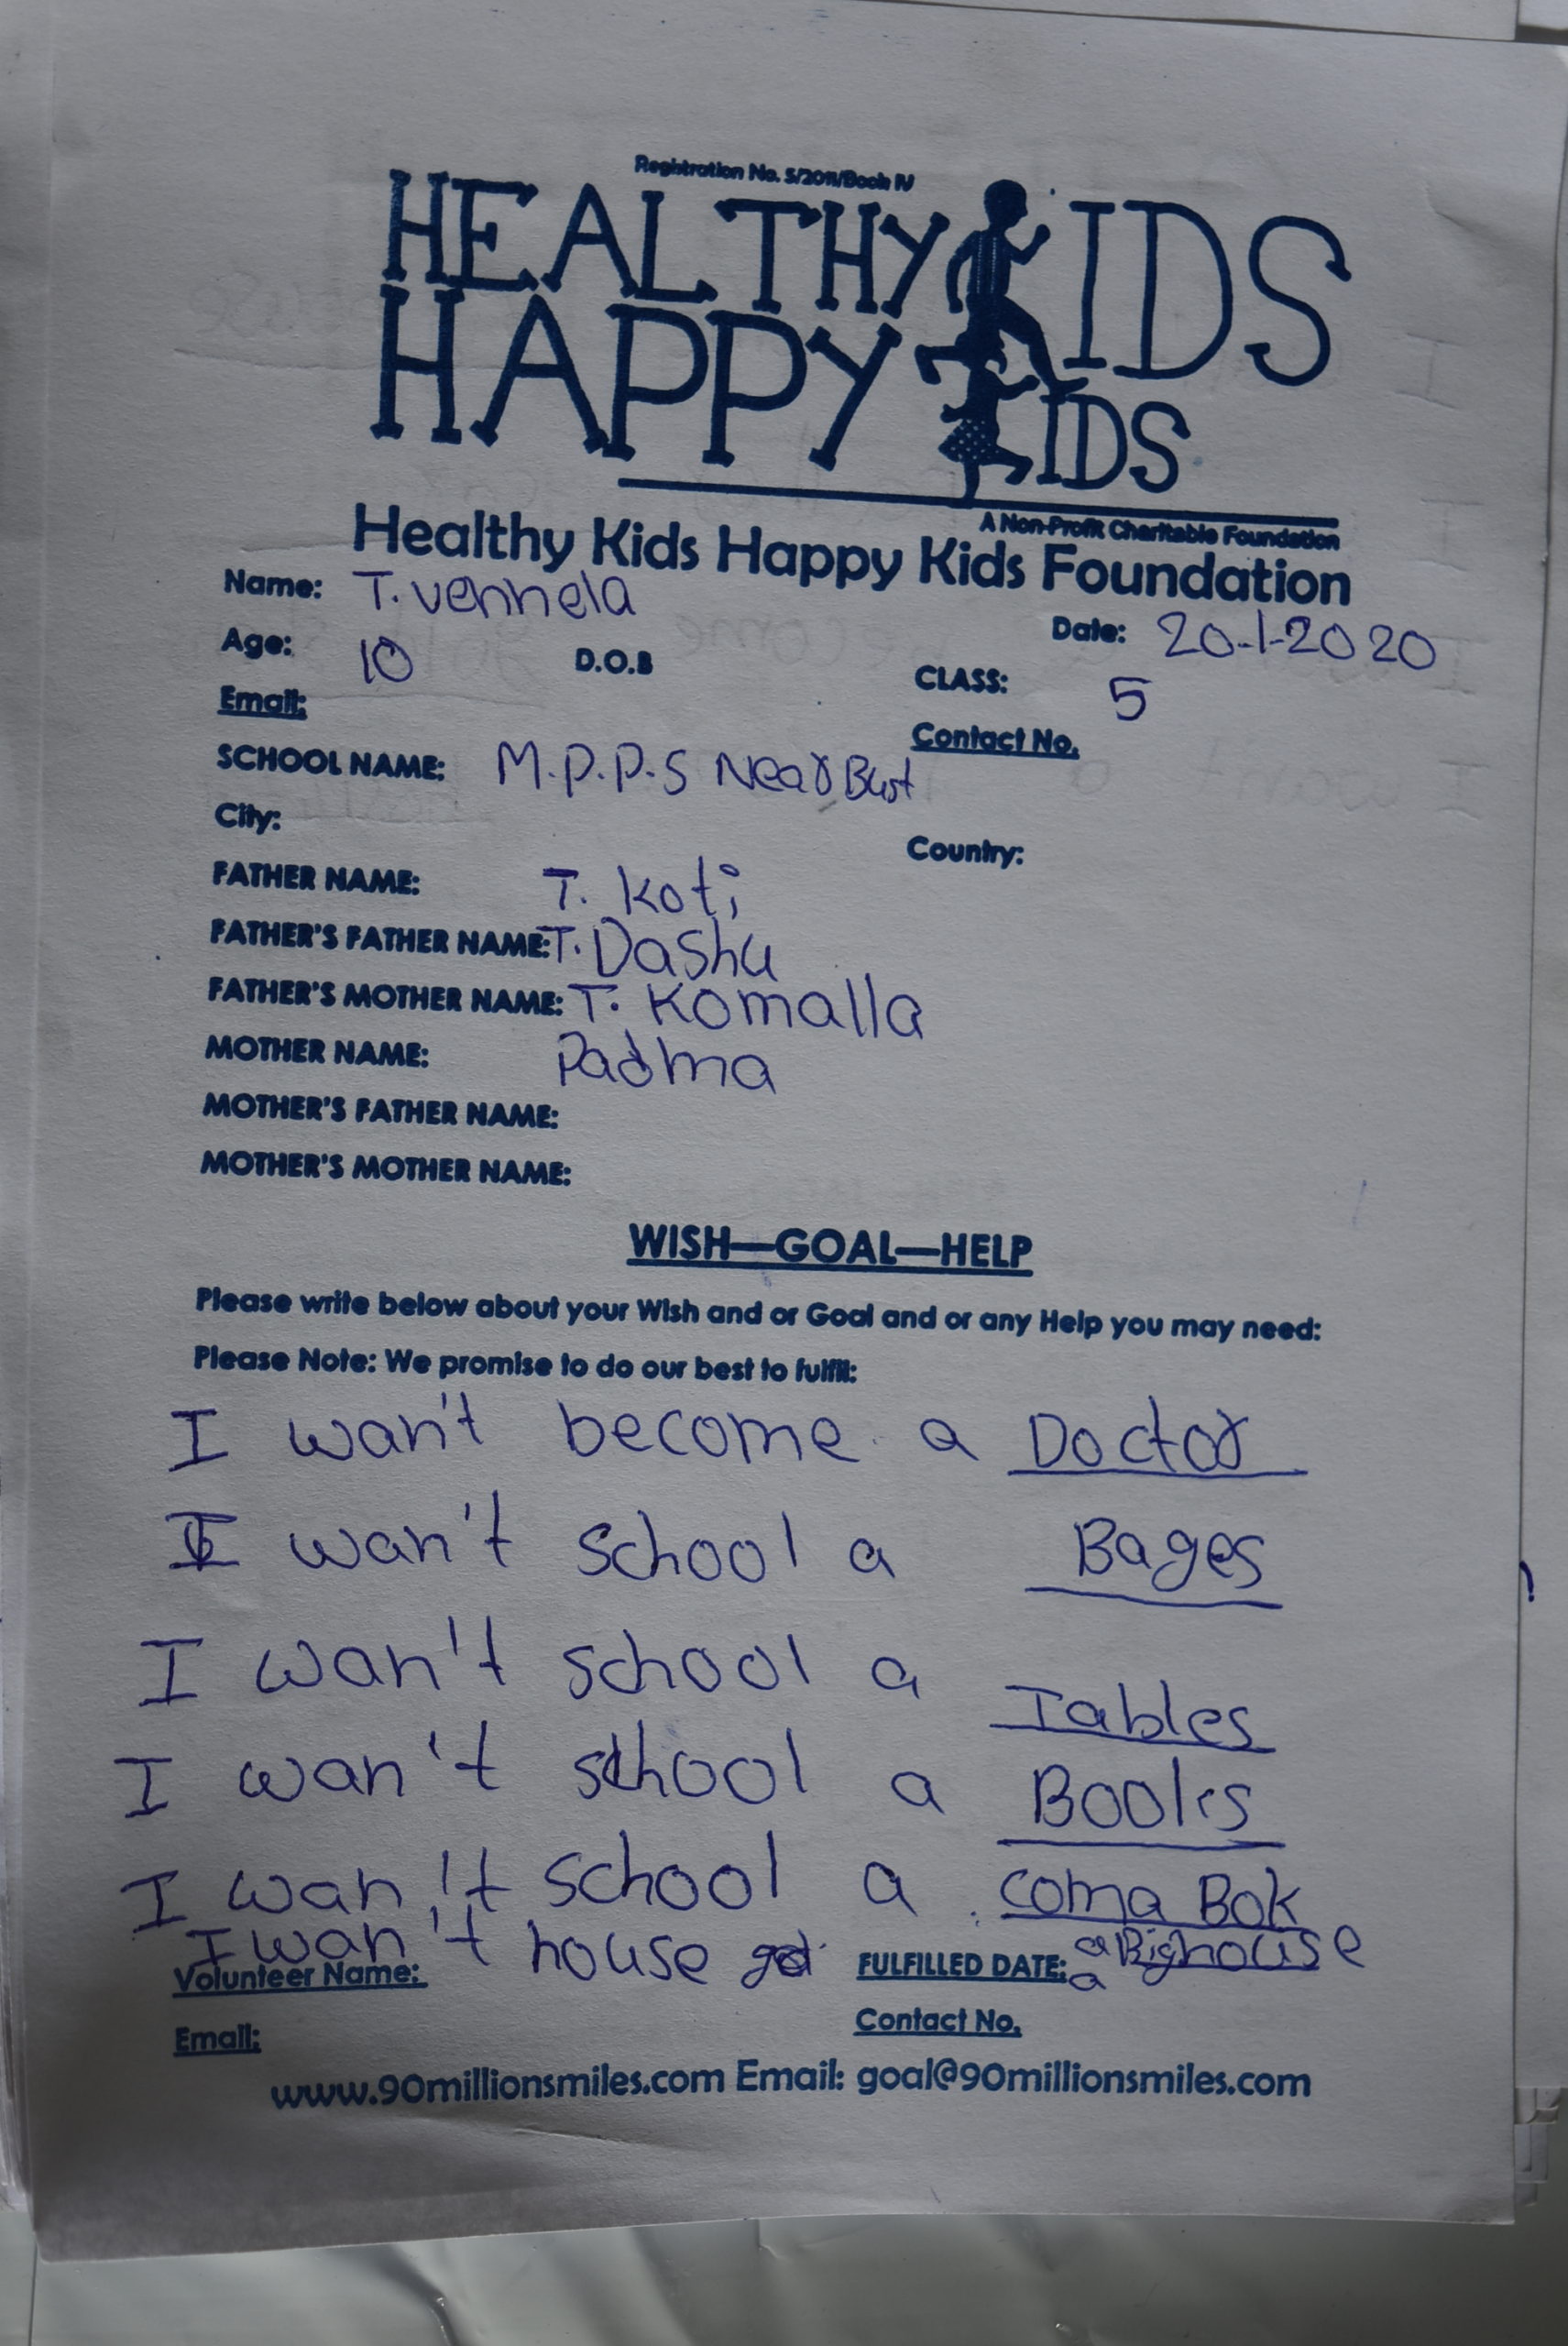 Registration No. 5/2011/Book IV
HEALTHY KIDS
HAPPY KIDS
A Non-Profit Charitable Foundation
Healthy Kids Happy Kids Foundation
Name: T. vennela
Date: 20-1-2020
Age: 10 D.O.B
CLASS: 5
Email:
Contact No.
SCHOOL NAME: M.P.P.S Near Bust
City:
Country:
FATHER NAME: T. Koti
FATHER'S FATHER NAME: T. Dashu
FATHER'S MOTHER NAME: T. Komalla
MOTHER NAME: Padma
MOTHER'S FATHER NAME:
MOTHER'S MOTHER NAME:
WISH—GOAL—HELP
Please write below about your Wish and or Goal and or any Help you may need:
Please Note: We promise to do our best to fulfil:
I wan't become a Doctor
I wan't school a Bages
I wan't school a Tables
I wan't school a Books
I wan't school a coma Bok
I wan't house a Bighouse
Volunteer Name: FULFILLED DATE:
Email: Contact No.
www.90millionsmiles.com Email: goal@90millionsmiles.com